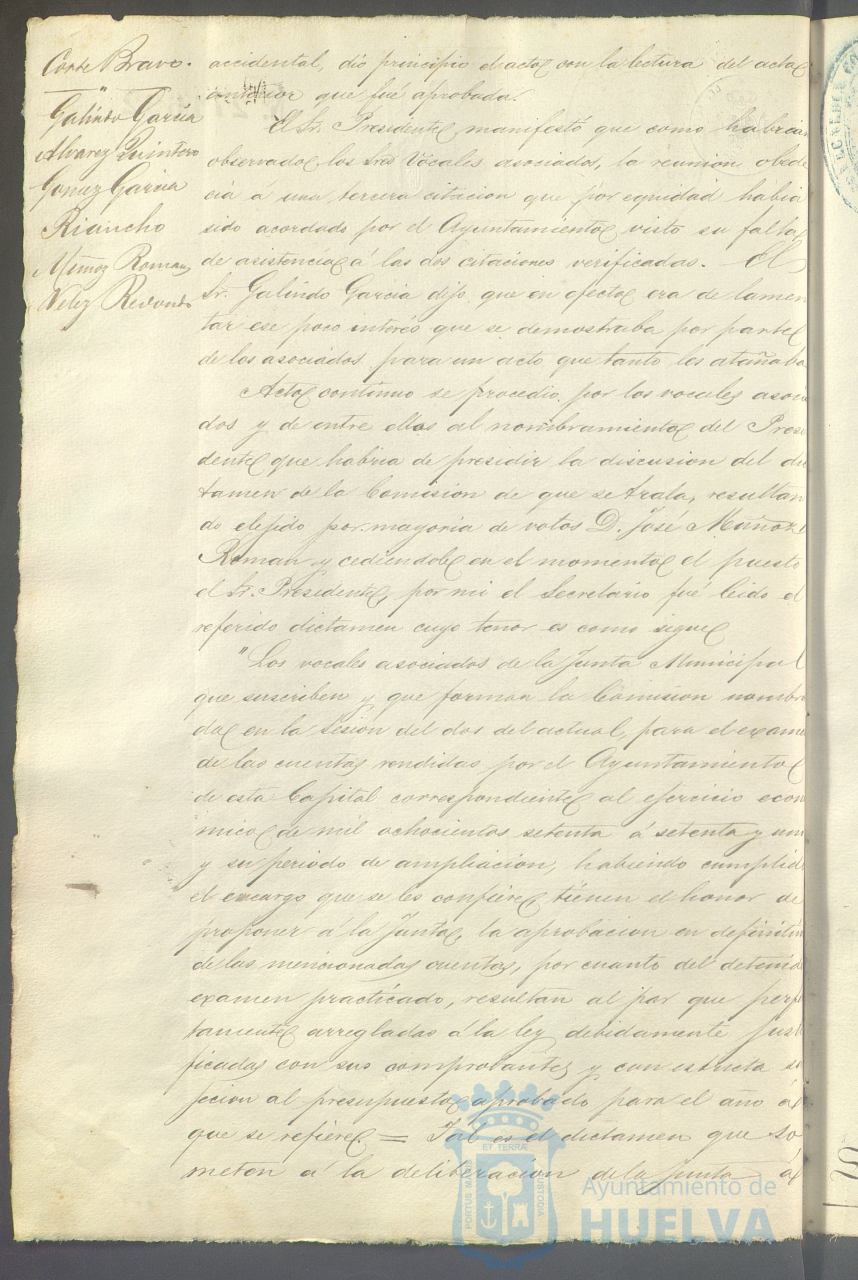 Corte Bravo.
"
Galindo García
Alvarez Quintero
Gomez García
Riancho
Muñoz Roman
Velez Redondo
accidental, dió principio el acto con la lectura del acta
anterior que fué aprobada.
El Sr. Presidente manifestó que como habrian
observado los Sres Vocales asociados, la reunion obede
cia á una tercera citacion que por equidad habia
sido acordado por el Ayuntamiento visto su falta
de asistencia á las dos citaciones verificadas. El
Sr. Galindo García dijo que en efecto era de lamen
tar ese poco interés que se demostraba por parte
de los asociados para un acto que tanto les atañaba
Acto continuo se procedio por los vocales asocia
dos y de entre ellos al nombramiento del Presi
dente que habria de presidir la discusion del dic
tamen de la Comision de que se trata, resultan
do elejido por mayoria de votos D. José Muñoz
Roman y cediendole en el momento el puesto
el Sr. Presidente, por mi el Secretario fué leido el
referido dictamen cuyo tenor es como sigue
"Los vocales asociados de la Junta Municipal
que suscriben y que forman la Comision nombra
da en la sesion del dos del actual, para el examen
de las cuentas rendidas por el Ayuntamiento
de esta Capital correspondiente al ejercicio econó
mico de mil ochocientos setenta á setenta y uno
y su periodo de ampliacion, habiendo cumplido
el encargo que se les confiere tienen el honor de
proponer á la Junta, la aprobacion en definitiva
de las mencionadas cuentas, por cuanto del detenido
examen practicado, resultan al par que perfec
tamente arregladas á la ley debidamente justi
ficadas con sus comprobantes y con estricta su
jecion al presupuesto aprobado para el año á
que se refiere = Tal es el dictamen que so
meten á la deliberacion de la Junta á
PORTUS MARIS
ET TERRAE
CUSTODIA
Ayuntamiento de
HUELVA